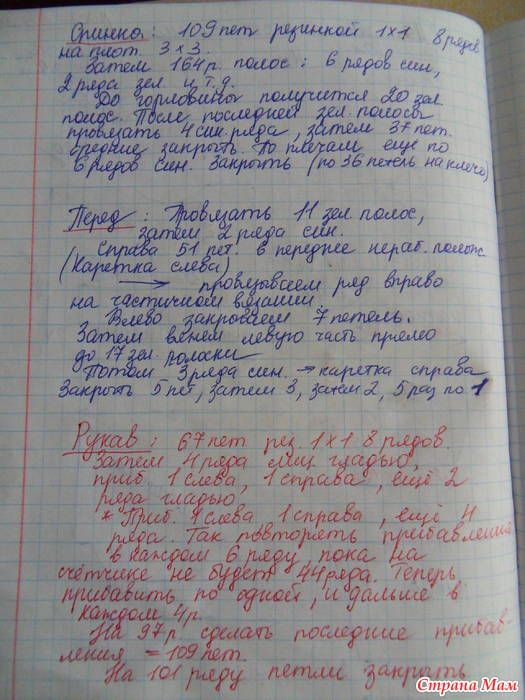 Спинка: 109 пет резинкой 1х1 8 рядов
на плот. 3х3.
Затем 164 р. полос: 6 рядов син,
2 ряда зел. и т.д.
До горловины получится 20 зел
полос. После последней зел. полосы
провязать 4 син. ряда, затем 37 пет.
средние закрыть. По плечам ещё по
6 рядов син. Закрыть (по 36 петель на плечо)
Перед: Провязать 11 зел полос,
затем 2 ряда син.
Справа 51 пет. в переднее нераб. полож
(Каретка слева)
→ провязываем ряд вправо
на частичном вязании.
Влево закрываем 7 петель.
Затем вяжем левую часть прямо
до 17 зел. полоски
Потом 3 ряда син. → каретка справа
Закрыть 5 пет, затем 3, затем 2, 5 раз по 1
Рукав: 67 пет рез. 1х1 8 рядов.
Затем 4 ряда лиц. гладью,
приб. 1 слева, 1 справа, ещё 2
ряда гладью
* Приб. 1 слева 1 справа, ещё 4
ряда. Так повторять прибавления
в каждом 6 ряду, пока на
счётчике не будет 44 ряда. Теперь
прибавить по одной, и дальше в
каждом 4 р.
На 97 р сделать последние прибав-
ления = 109 пет.
На 101 ряду петли закрыть
Страна Мам